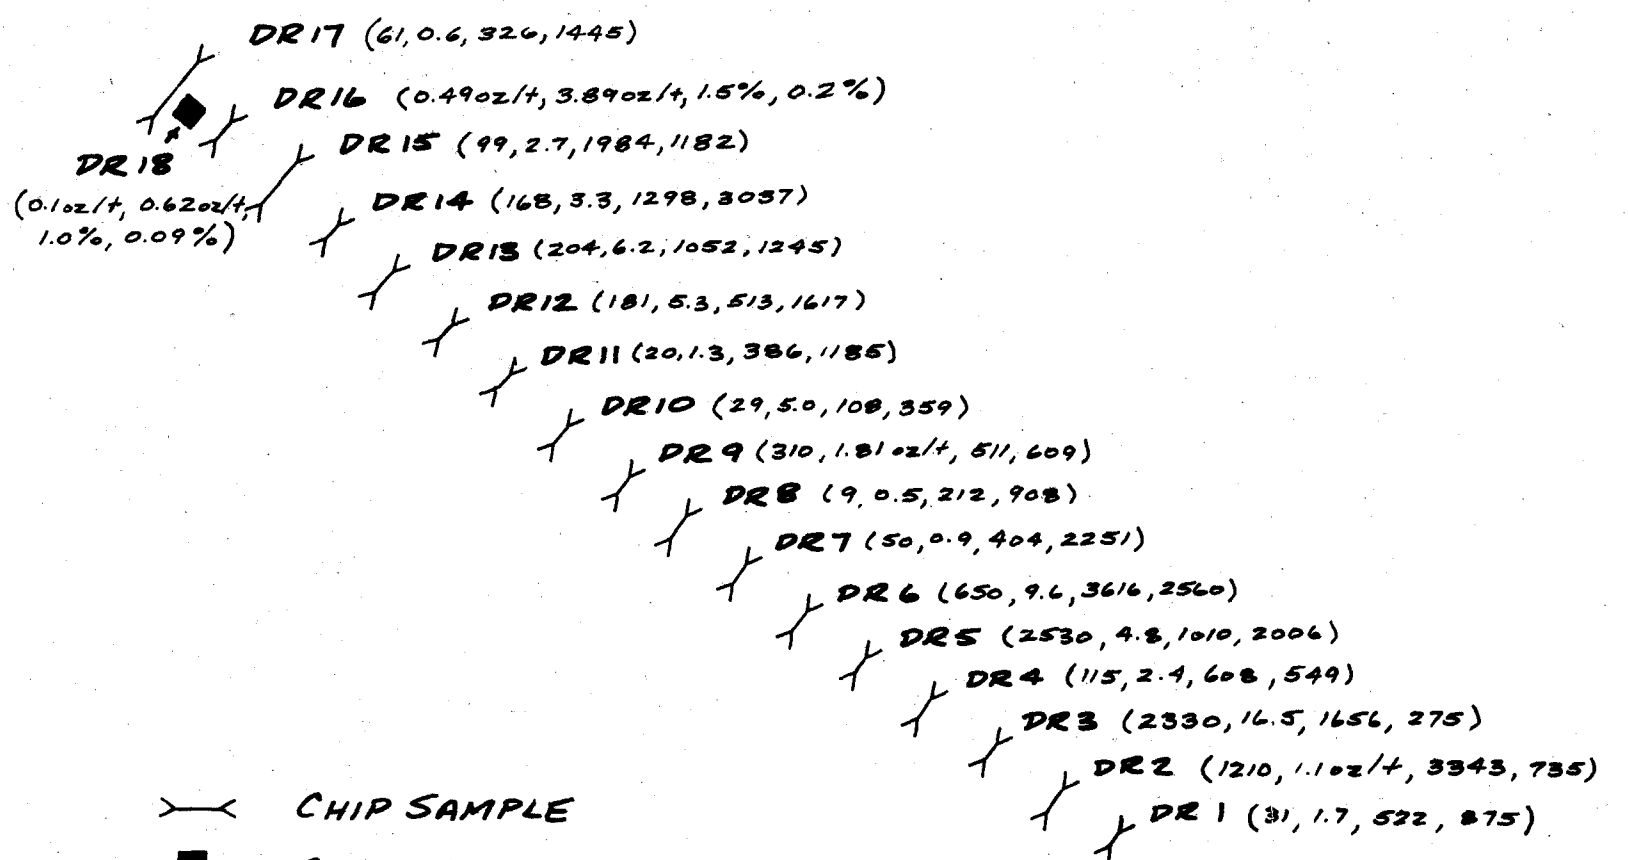 DR17 (61, 0.6, 326, 1445)
DR16 (0.49oz/t, 3.89oz/t, 1.5%, 0.2%)
DR15 (99, 2.7, 1984, 1182)
DR18
(0.1oz/t, 0.62oz/t,
1.0%, 0.09%)
DR14 (168, 3.3, 1298, 3037)
DR13 (204, 6.2, 1052, 1245)
DR12 (181, 5.3, 513, 1617)
DR11 (20, 1.3, 386, 1185)
DR10 (29, 5.0, 108, 359)
DR9 (310, 1.81oz/t, 511, 609)
DR8 (9, 0.5, 212, 908)
DR7 (50, 0.9, 404, 2251)
DR6 (650, 9.6, 3616, 2560)
DR5 (2530, 4.8, 1010, 2006)
DR4 (115, 2.4, 608, 549)
DR3 (2330, 16.5, 1656, 275)
DR2 (1210, 1.1oz/t, 3343, 735)
DR1 (31, 1.7, 522, 875)
CHIP SAMPLE